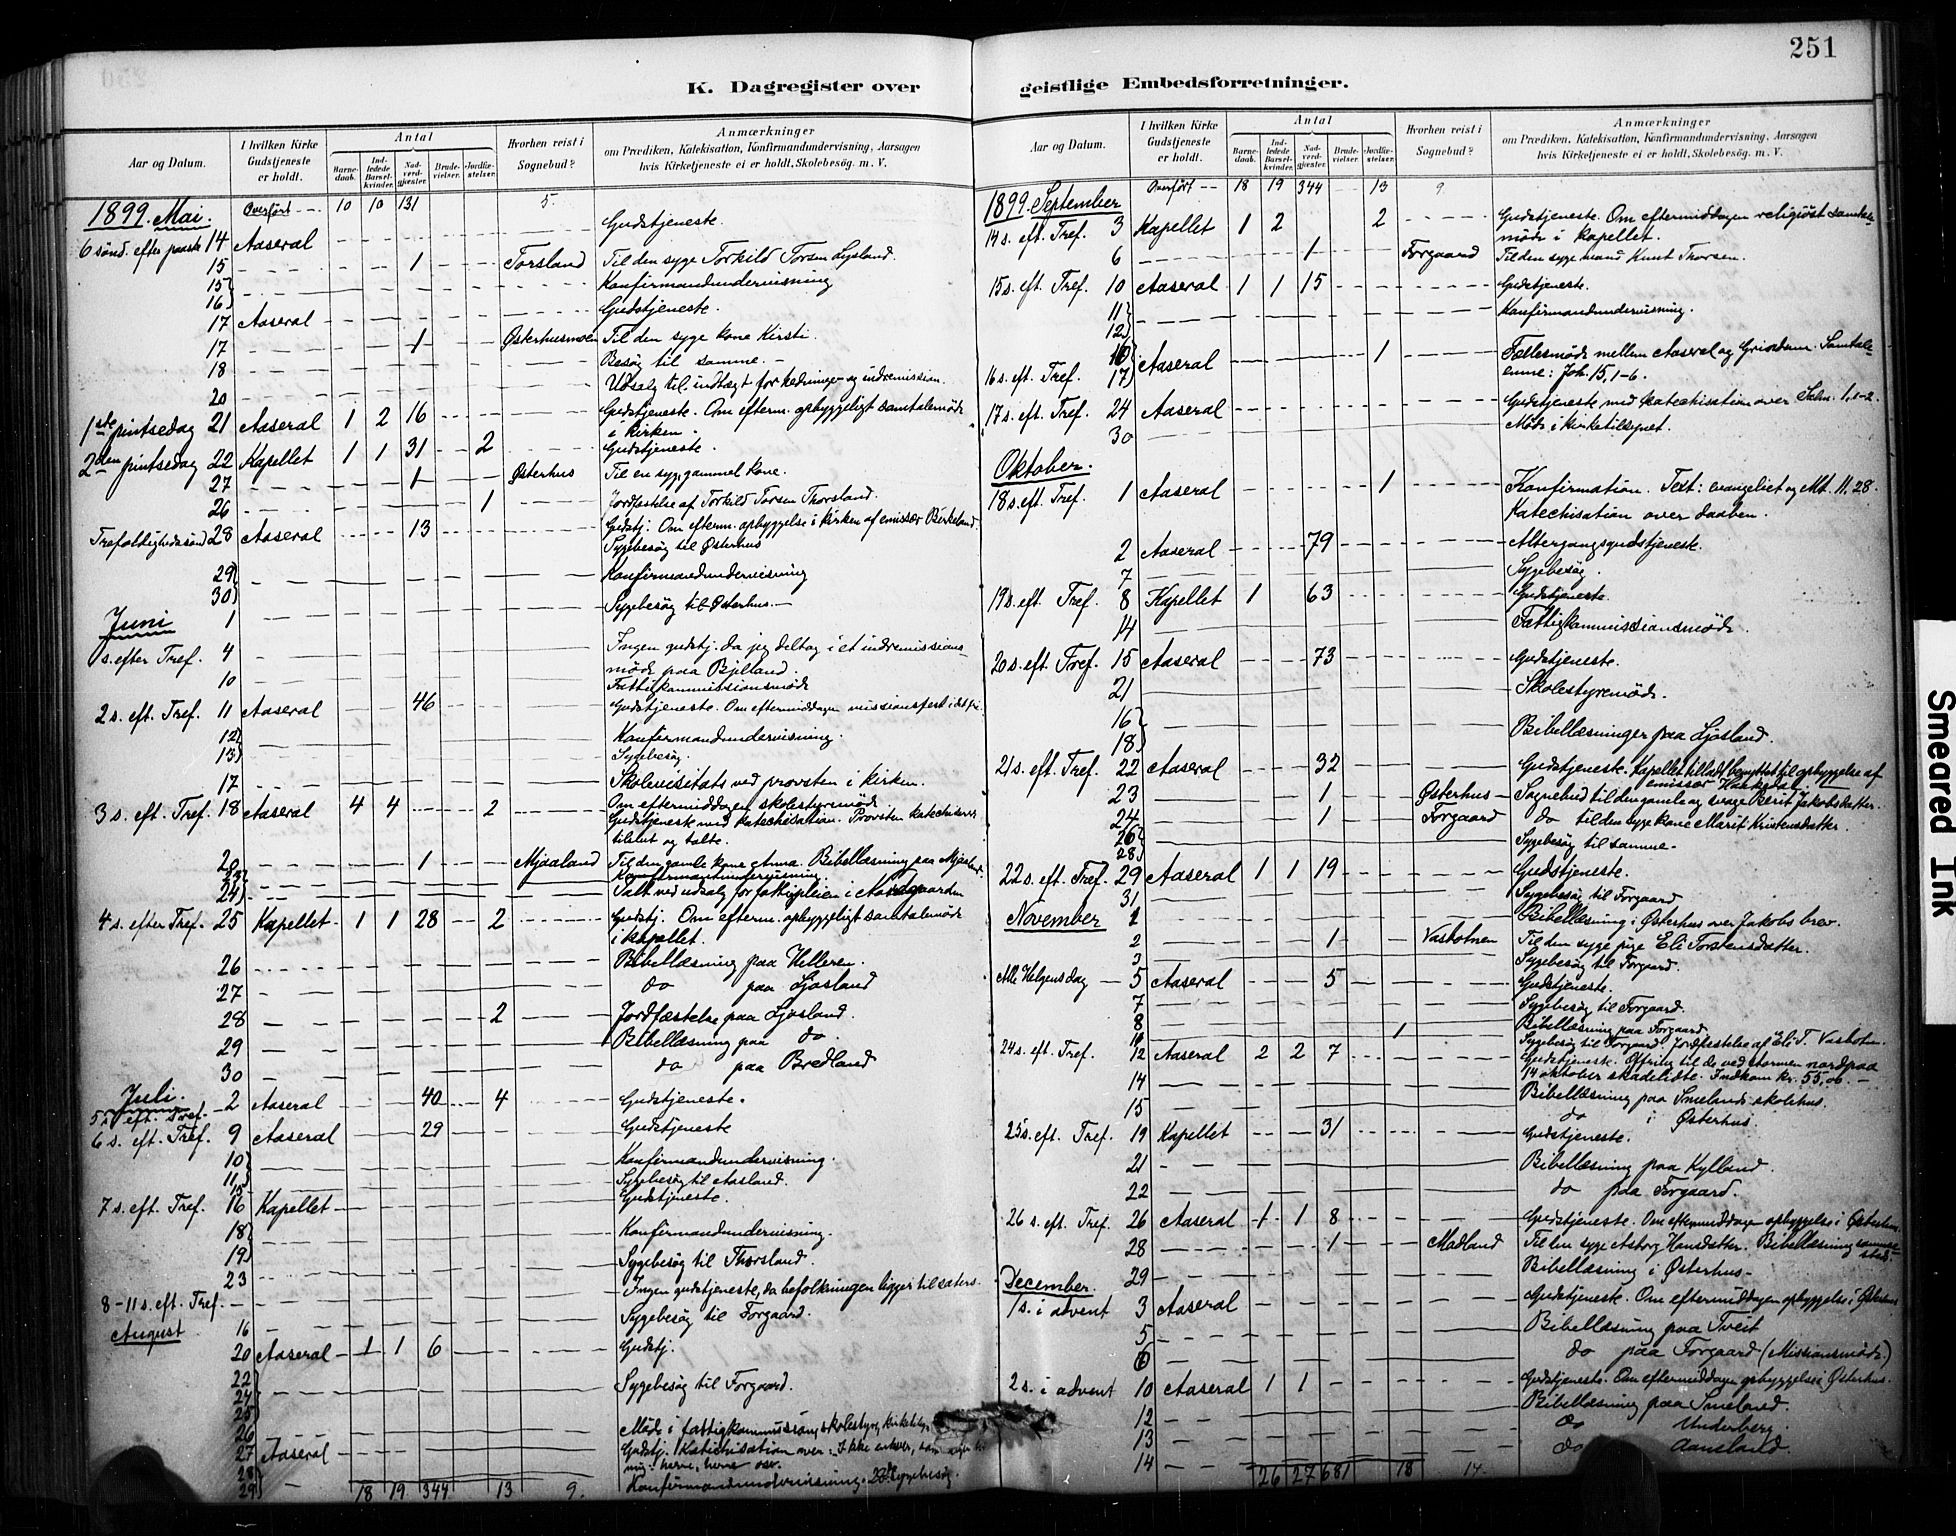 251
K. Dagregister over
geistlige Embedsforretninger.
Aar og Datum.
I hvilken Kirke Gudstjeneste er holdt.
Antal
Barnedaab.
Indledede Barselkvinder.
Nadverdgjæster.
Brudevielser.
Jordfæstelser.
Hvorhen reist i Sognebud?
Anmærkninger
om Prædiken, Katekisation, Konfirmandundervisning, Aarsagen
hvis Kirketjeneste ei er holdt, Skolebesøg. m. V.
1899. Mai. Overført 10 10 131 5.
6 sønd. efter paaske 14 Aaseral Gudstjeneste.
15 1 Torsland Til den syge Torkild Torsen Lysland.
15 16 Konfirmandundervisning
17 Aaseral Gudstjeneste.
17 1 Østerhusmoen Til den syge kone Kirsti.
18 Besøg til samme.
20 Udsalg til indtægt for hedninge- og indremission.
1ste pintsedag 21 Aaseral 1 2 16 Gudstjeneste. Om efterm. opbyggeligt samtalemøde
i kirken.
2den pintsedag 22 Kapellet 1 1 31 2 Gudstjeneste.
27 1 Østerhus Til en syg, gammel kone.
26 1 Jordfæstelse af Torkild Torsen Thorsland.
Trefoldighedssønd 28 Aaseral 13 Gudstj. Om efterm. opbyggelse i kirken af emissær Birkeland.
Sygebesøg til Østerhus
29 30 Konfirmandundervisning
Juni 1 Sygebesøg til Østerhus.
s. efter Tref. 4 Ingen gudstj. da jeg deltog i et indremissions-
møde paa Bjelland.
10 Fattigkommissionsmøde
2 s. eft. Tref. 11 Aaseral 46 Gudstjeneste. Om eftermiddagen missionsfest i det fri
12 13 Konfirmandundervisning.
Sygebesøg.
17 Skolevisitats ved provsten i kirken.
Om eftermiddagen skolestyremøde
3 s. eft. Tref. 18 Aaseral 4 4 2 Gudstjeneste med katechisation. Provsten
tilslut og talte.
20 1 Mjaaland Til den gamle kone Anna. Bibellæsning paa Mjaaland.
23 Konfirmandundervisning.
24 Talt ved udsalg for fattigpleien i
4 s. efter Tref. 25 Kapellet 1 1 28 2 Gudstj. Om efterm. opbyggeligt samtalemøde
i kapellet.
26 Bibellæsning paa Helleren.
27 do paa Ljosland
28 2 Jordfæstelse paa Ljosland.
29 Bibellæsning paa do.
30 do paa Bredland
Juli.
5 s. eft. Tref. 2 Aaseral 40 4 Gudstjeneste.
6 s. eft. Tref. 9 Aaseral 29 Gudstjeneste
10 11 Konfirmandundervisning.
15 Sygebesøg til Aasland.
7 s. eft. Tref. 16 Kapellet Gudstjeneste.
18 19 Konfirmandundervisning.
23 Sygebesøg til Thorsland.
8-11 s. eft. Tref. Ingen gudstjeneste, da befolkningen ligger til sæters.
August 16 Sygebesøg til Forgaard.
20 Aaseral 1 1 6 Gudstj.
22 24 25 Sygebesøg til Forgaard.
26 Møde i fattigkommission, skolestyre, kirketilsyn
27 Aaseral Gudstj. Katechisation over: Ikke enhver, som siger til
mig: herre, herre osv.
28 29 Konfirmandundervisning. Sygebesøg.
18 19 344 13 9.
1899. September Overført 18 19 344 13 9
14 s. eft. Tref. 3 Kapellet 1 2 2 Gudstjeneste. Om eftermiddagen religiøst samtale-
møde i kapellet.
6 1 Forgaard Til den syge mand Knut Thorsen.
15 s. eft. Tref. 10 Aaseral 1 1 15 Gudstjeneste.
11 12 Konfirmandundervisning.
16 s. eft. Tref. 16 17 Aaseral 1 Fællesmøde mellem Aaseral og Grindum. Samtale-
emne: Joh. 15, 1-6.
17 s. eft. Tref. 24 Aaseral Gudstjeneste med katechisation over Salm. 1, 1-2.
30 Møde i kirketilsynet.
Oktober.
18 s. eft. Tref. 1 Aaseral 1 Konfirmation. Text: evangeliet og Mt. 11. 28.
Katechisation over daaben.
2 Aaseral 79 Altergangsgudstjeneste.
7 Sygebesøg.
19 s. eft. Tref. 8 Kapellet 1 63 Gudstjeneste.
14 Fattigkommissionsmøde.
20 s. eft. Tref. 15 Aaseral 73 Gudstjeneste.
21 Skolestyremøde.
16 18 Bibellæsninger paa Ljosland.
21 s. eft. Tref. 22 Aaseral 32 Gudstjeneste. Kapellet tilladt benyttet til opbyggelse af
emissær
23 1 Østerhus Sognebud til den gamle og svage Berit Jakobsdatter.
24 1 Forgaard do til den syge kone Marit Kristensdatter.
26 28 Sygebesøg til samme.
22 s. eft. Tref. 29 Aaseral 1 1 19 Gudstjeneste.
31 Sygebesøg til Forgaard
November 1 Bibellæsning i Østerhus over Jakobs brev.
2 1 Vasholmen Til den syge pige Eli Torstensdatter.
3 Sygebesøg til Forgaard.
Alle Helgensdag 5 Aaseral 5 Gudstjeneste.
7 Sygebesøg til Forgaard.
8 Bibellæsning paa Forgaard.
11 1 Sygebesøg til Forgaard. Jordfæstelse af Eli T. Vasholm.
24 s. eft. Tref. 12 Aaseral 2 2 7 Gudstjeneste. Offring til de ved stormen nordpaa
14 oktober skadelidte. Indkom kr. 55,00.
14 Bibellæsning paa Smelands skolehus.
15 do i Østerhus.
25 s. eft. Tref. 19 Kapellet 31 Gudstjeneste.
21 Bibellæsning paa Kylland.
22 do paa Forgaard.
26 s. eft. Tref. 26 Aaseral 1 1 8 Gudstjeneste. Om eftermiddagen opbyggelse i Østerhus.
28 1 Madland Til en syge Asborg Hansdatter. Bibellæsning sammesteds.
29 Bibellæsning i Østerhus.
December.
1 s. i advent 3 Aaseral Gudstjeneste. Om eftermiddagen opbyggelse i Østerhus
5 Bibellæsning paa Sveit
6 do paa Forgaard (Missionsmøde.)
2 s. i advent 10 Aaseral 1 1 Gudstjeneste. Om eftermiddagen opbyggelse i Østerhus.
12 Bibellæsning paa Smeland.
13 do Underberg
14 do Aamsland.
26 27 681 18 14.
Smeared Ink